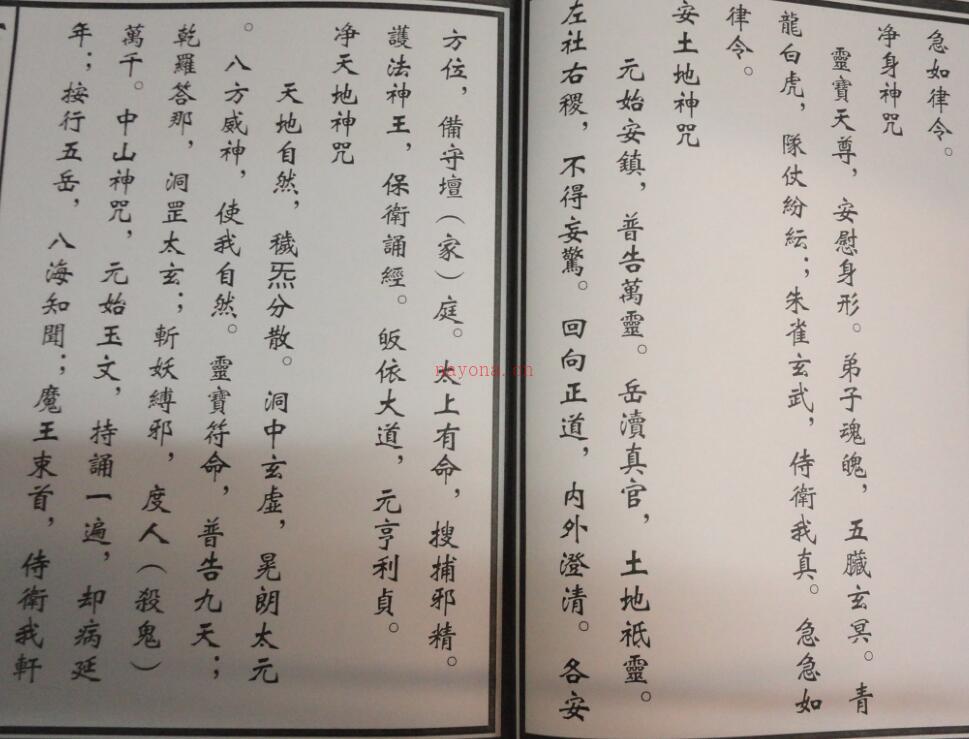 急如律令。
净身神咒
靈寶天尊，安慰身形。弟子魂魄，五臟玄冥。青
龍白虎，隊仗紛紜；朱雀玄武，侍衛我真。急急如
律令。
安土地神咒
元始安鎮，普告萬靈。岳瀆真官，土地祗靈。
左社右稷，不得妄驚。回向正道，內外澄清。各安
方位，備守壇（家）庭。太上有命，搜捕邪精。
護法神王，保衛誦經。皈依大道，元亨利貞。
净天地神咒
天地自然，穢炁分散。洞中玄虛，晃朗太元
。八方威神，使我自然。靈寶符命，普告九天；
乾羅答那，洞罡太玄；斬妖縛邪，度人（殺鬼）
萬千。中山神咒，元始玉文，持誦一遍，却病延
年；按行五岳，八海知聞；魔王束首，侍衛我軒
nayona.cn